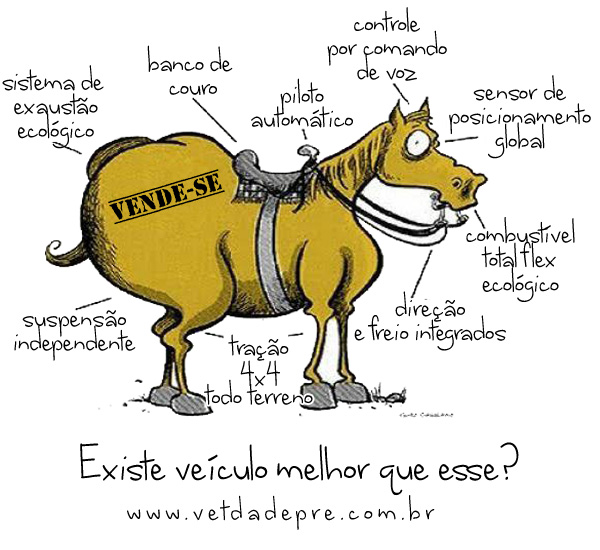 controle
por comando
de voz
banco de
couro
sistema de
exaustão
ecológico
piloto
automático
sensor de
posicionamento
global
VENDE-SE
combustível
total flex
ecológico
direção
e freio integrados
suspensão
independente
tração
4x4
todo terreno
Existe veículo melhor que esse?
www.vetdadepre.com.br